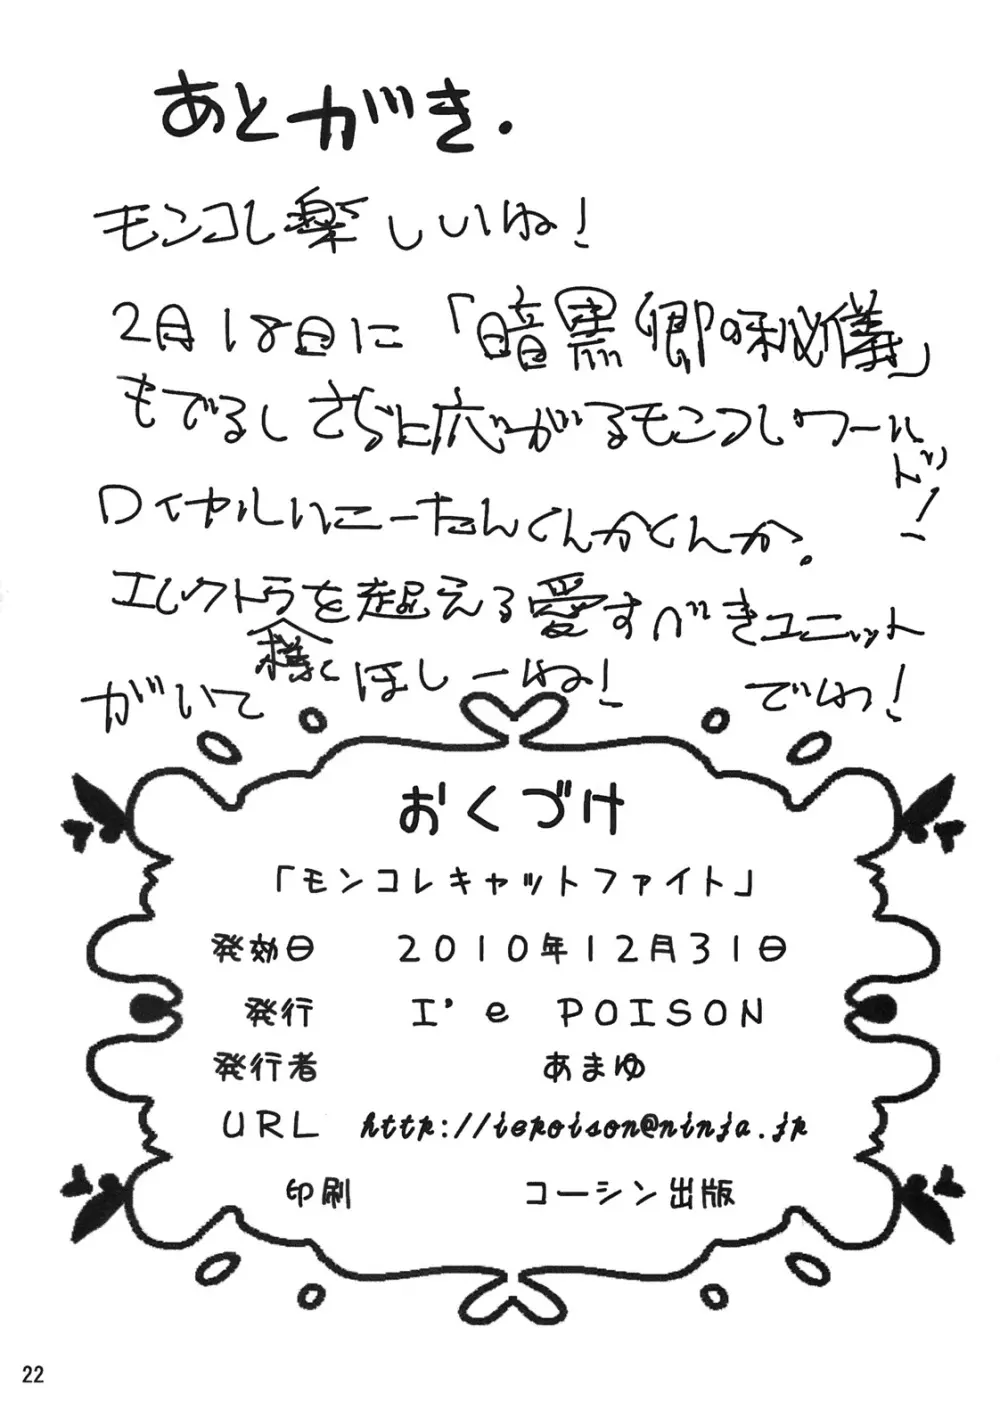 あとがき.
モンコレ楽しいね!
2月18日に「暗黒卿の秘儀」
もでるしさらに広がるモンコレワールド!
ロイヤルハニーたんくんかくんか.
エレクトラ様を超える愛すべきユニット
がいてほしーね! でわ!
おくづけ
「モンコレキャットファイト」
発効日 2010年12月31日
発行 I'e POISON
発行者 あまゆ
URL http://iepoison@ninja.jp
印刷 コーシン出版
22